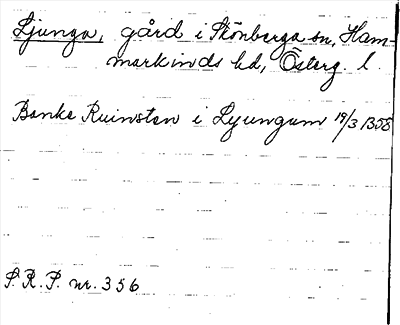 Ljunga, gård i Skönberga sn, Ham-
markinds hd, Österg l.
Banke Ruinsten i Lyungum 19/3 1358
S.R.P. nr. 356